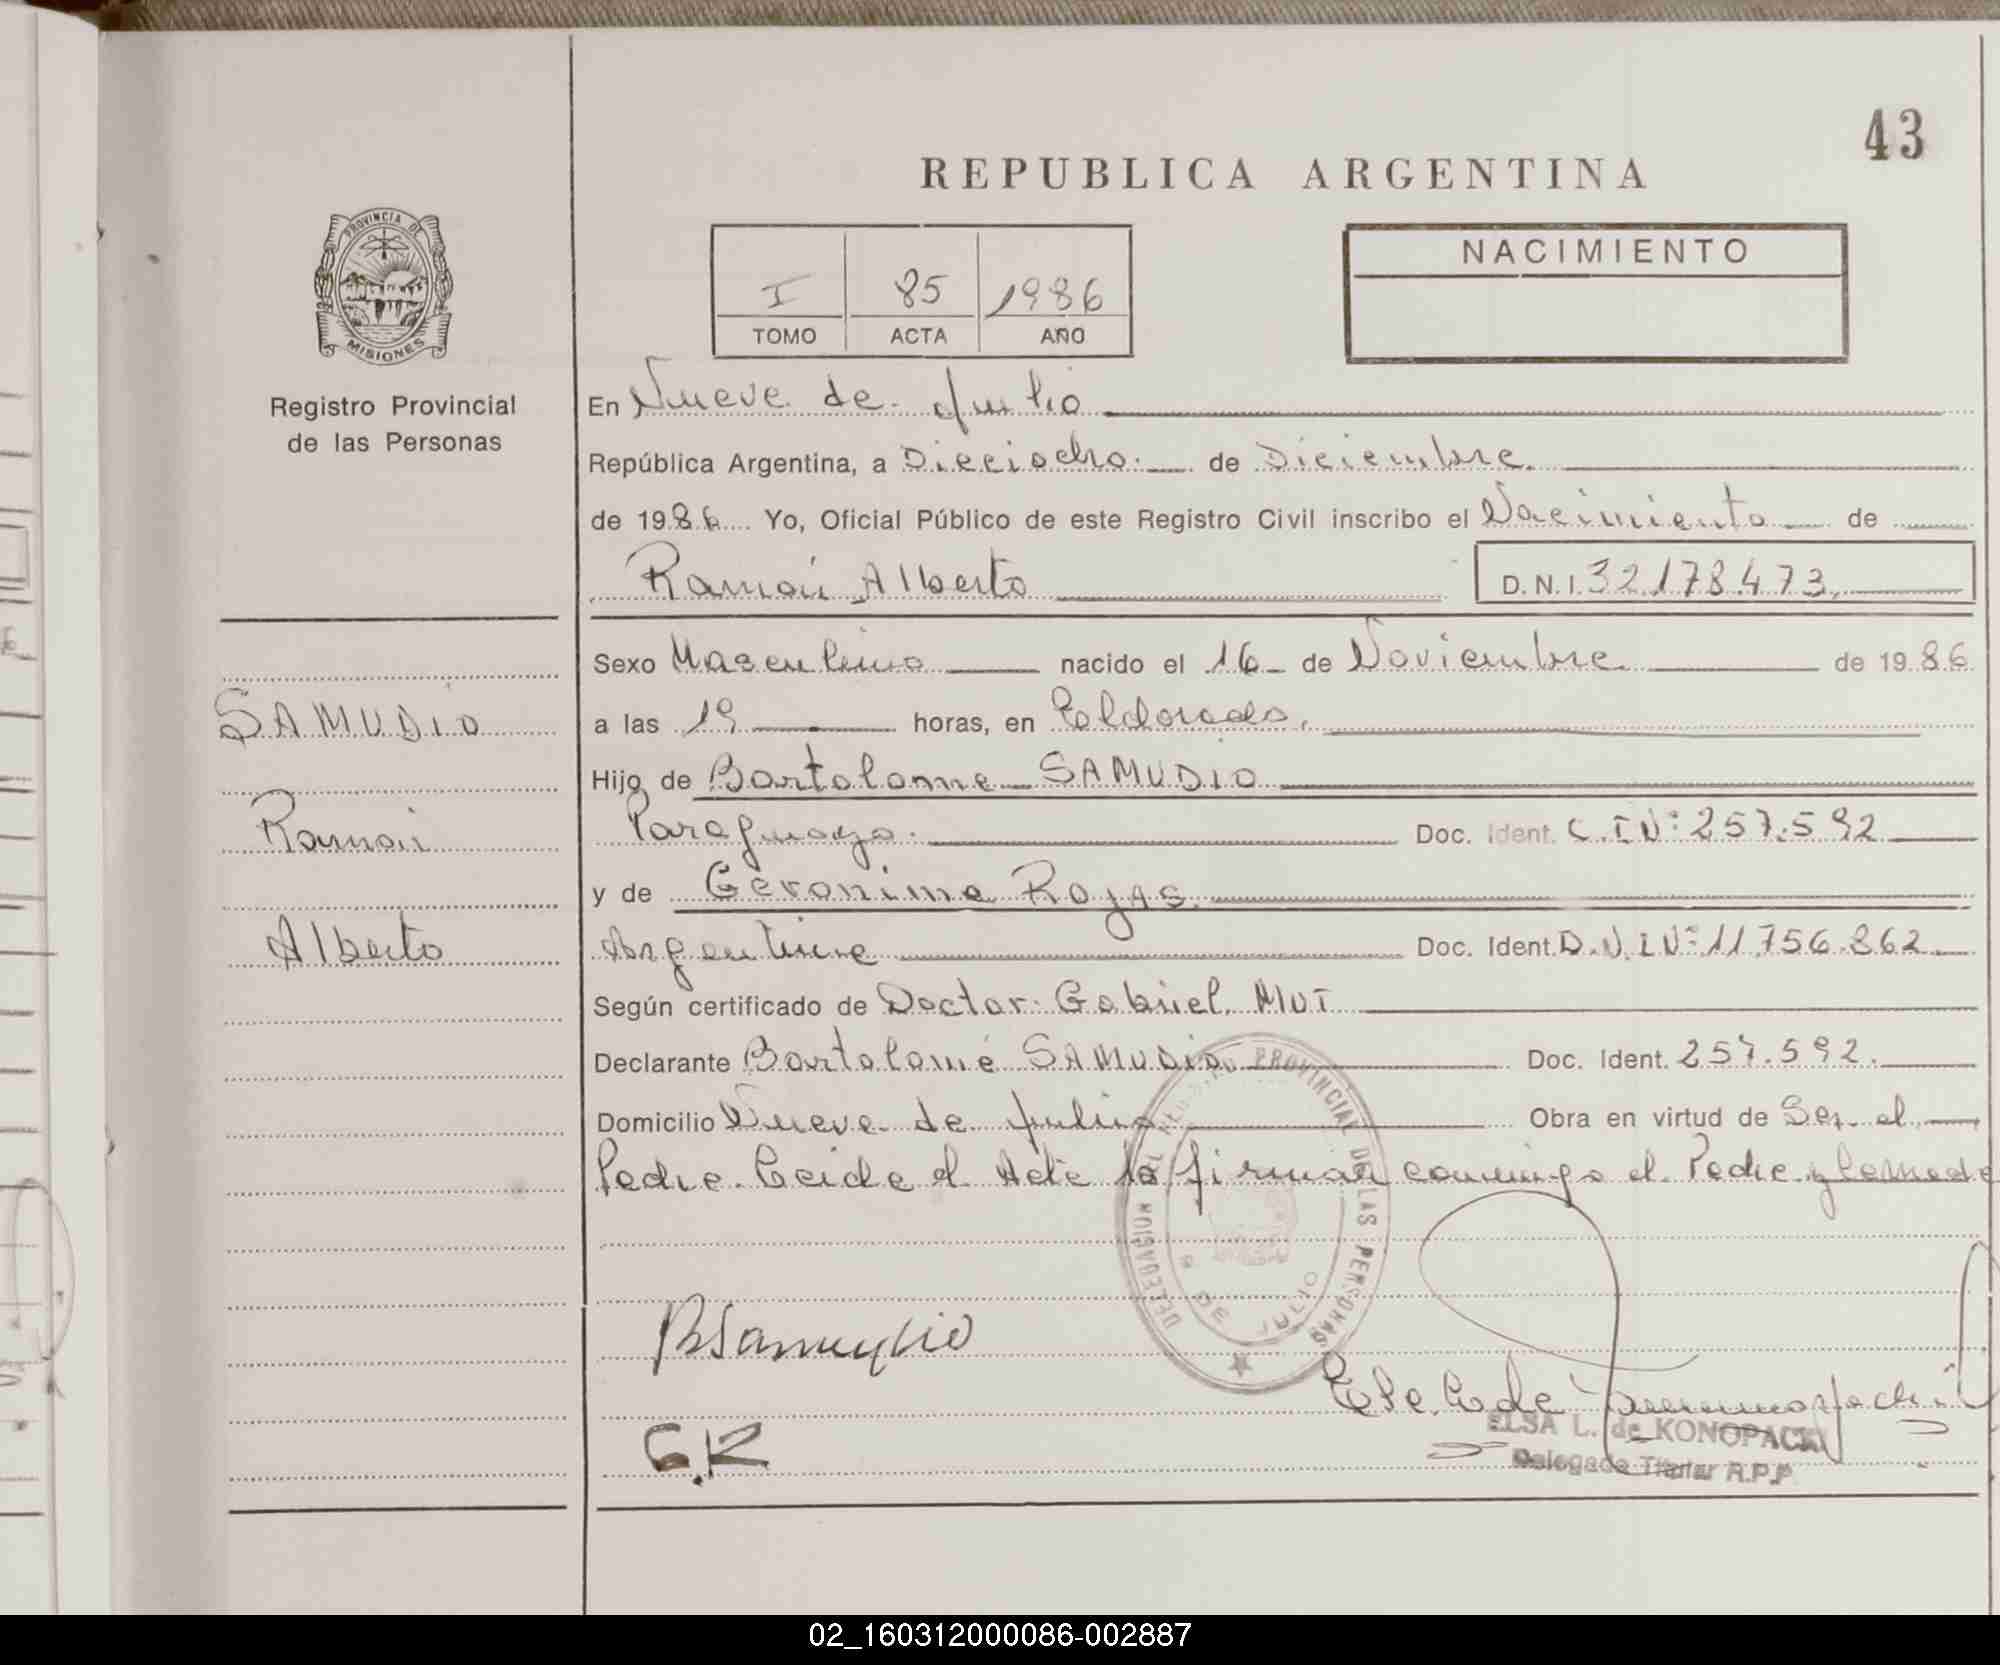 43
REPUBLICA ARGENTINA
PROVINCIA DE
MISIONES
Registro Provincial
de las Personas
NACIMIENTO
I 85 1986
TOMO ACTA AÑO
En Nueve de Julio
República Argentina, a Dieciocho de Diciembre
de 1986 Yo, Oficial Público de este Registro Civil inscribo el Nacimiento de
Ramón Alberto D.N.I. 32.178.473
Sexo Masculino nacido el 16 de Noviembre de 1986
SAMUDIO
a las 19 horas, en Eldorado.
Hijo de Bartolome SAMUDIO
Ramón
Paraguayo. Doc. Ident. C.I Nº 257.592
y de Geronima Rojas
Alberto
Argentina Doc. Ident. D.N.I Nº 11.756.862
Según certificado de Doctor Gabriel MUT
Declarante Bartolomé SAMUDIO Doc. Ident. 257.592.
Domicilio Nueve de Julio Obra en virtud de Ser el
Padre. Leida el Acta la firman conmigo el Padre y la madre
DELEGACION DEL REGISTRO PROVINCIAL DE LAS PERSONAS
9 DE JULIO
BSamudio
G.R
ELSA L. de KONOPACKI
Delegada Titular R.P.P
02_160312000086-002887